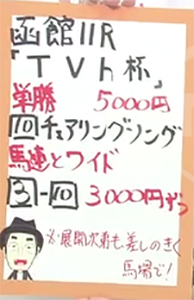 函館11R
「TVh杯」
単勝 5000円
⑩チェアリングソング
馬連とワイド
③-⑩ 3000円ずつ
※展開次第も差しのきく
馬場で!